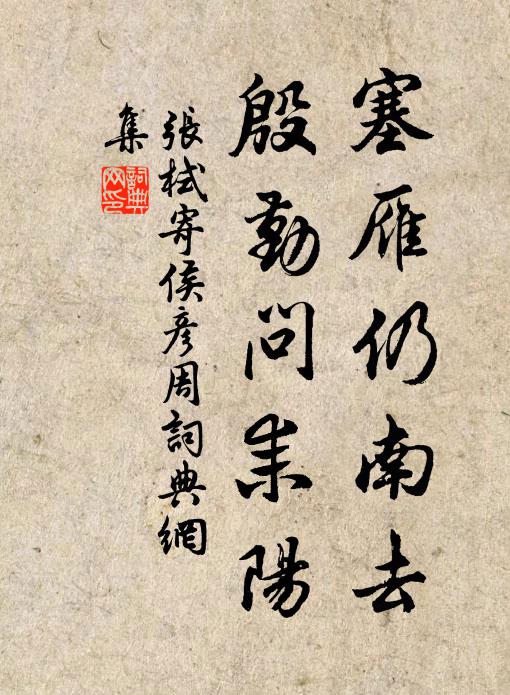 塞雁仍南去
殷勤問耒陽
張栻寄侯彥周詞典網
集
詞典
网印